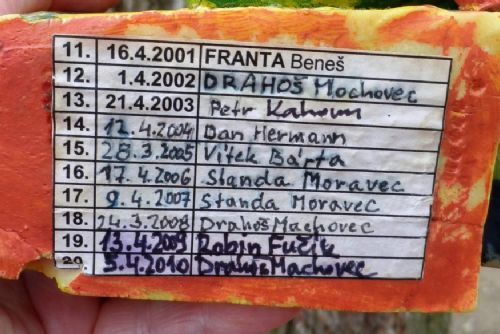 11. 16.4.2001 FRANTA Beneš
12. 1.4.2002 DRAHOŠ Mochovec
13. 21.4.2003 Petr
14. 12.4.2004 Dan Hermann
15. 28.3.2005 Vítek Bárta
16. 17.4.2006 Standa Moravec
17. 9.4.2007 Standa Moravec
18. 24.3.2008 Drahoš Machovec
19. 13.4.2009 Robin Fučík
20. 5.4.2010 Drahoš Machovec